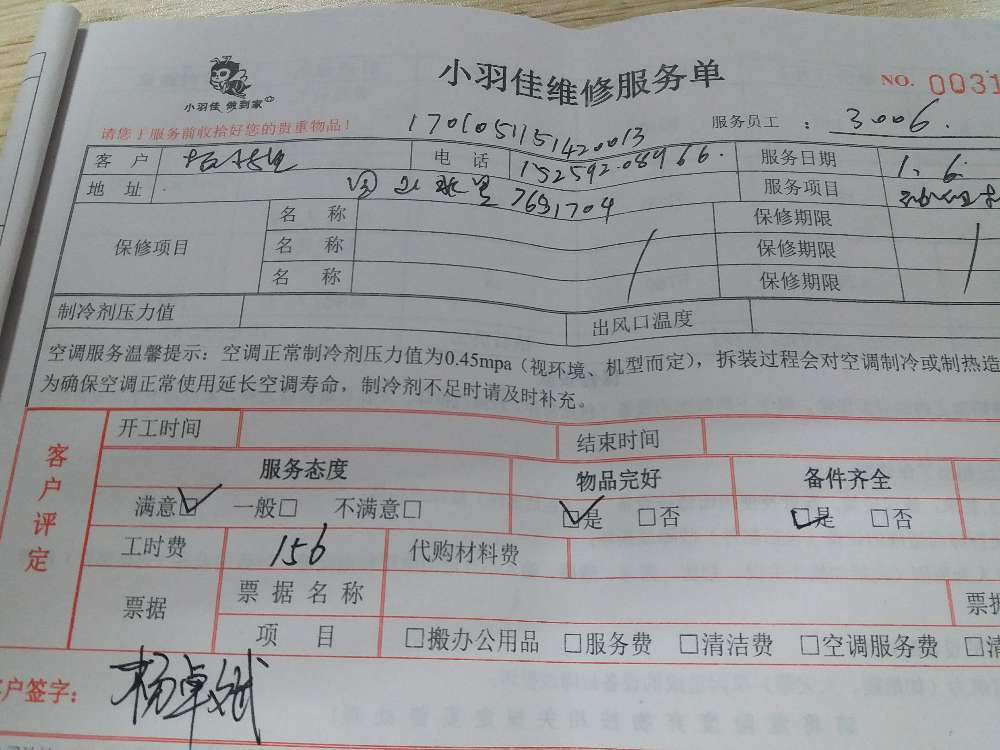 小羽佳维修服务单
NO. 0031
小羽佳 做到家
请您于服务前收拾好您的贵重物品!
1701051151420013
服务员工 : 3006.
客 户 电 话 15259208966. 服务日期 1.6.
地 址 769 1704 服务项目
保修项目 名 称 保修期限
名 称 保修期限
名 称 保修期限
制冷剂压力值 出风口温度
空调服务温馨提示:空调正常制冷剂压力值为0.45mpa(视环境、机型而定),拆装过程会对空调制冷或制热造
为确保空调正常使用延长空调寿命,制冷剂不足时请及时补充。
客户评定
开工时间 结束时间
服务态度 物品完好 备件齐全
满意☑ 一般□ 不满意□ ☑是 □否 ☑是 □否
工时费 156 代购材料费
票据 票据名称 票据
项 目 □搬办公用品 □服务费 □清洁费 □空调服务费 □清
客户签字: 杨卓斌